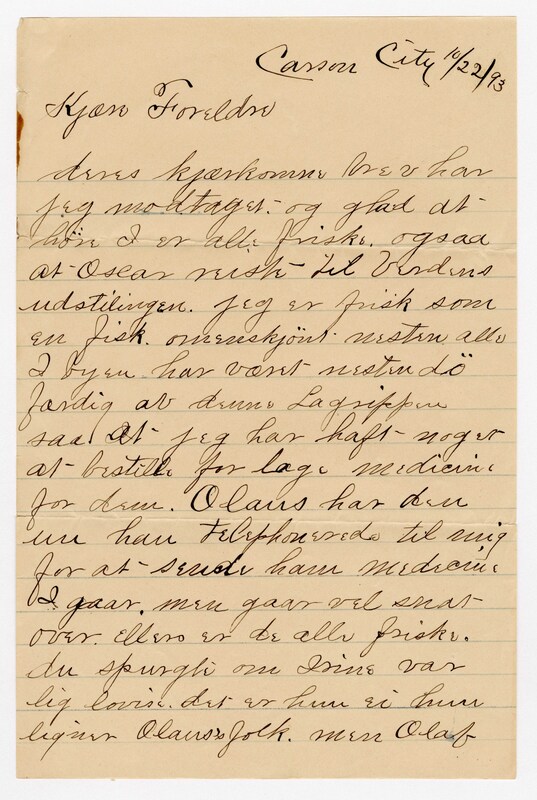 Carson City 10/22/93
Kjære Foreldre
deres kjærkomne brev har
jeg modtaget. og glad at
höre I er alle friske. ogsaa
at Oscar reiste til Verdens
udstilingen. jeg er frisk som
en fisk. omenskjönt nesten alle
I byen har været nesten dö
færdig av denne Lagrippen
saa At jeg har haft noget
at bestille for lage medicine
for dem. Olaus har den
nu han telephonerede til mig
for at sende ham medicine
I gaar. men gaar vel snat
over. Ellers er de alle friske.
du spurgte om Irine var
lig lovise. det er hun ei hun
ligner Olaus's folk. men Olaf